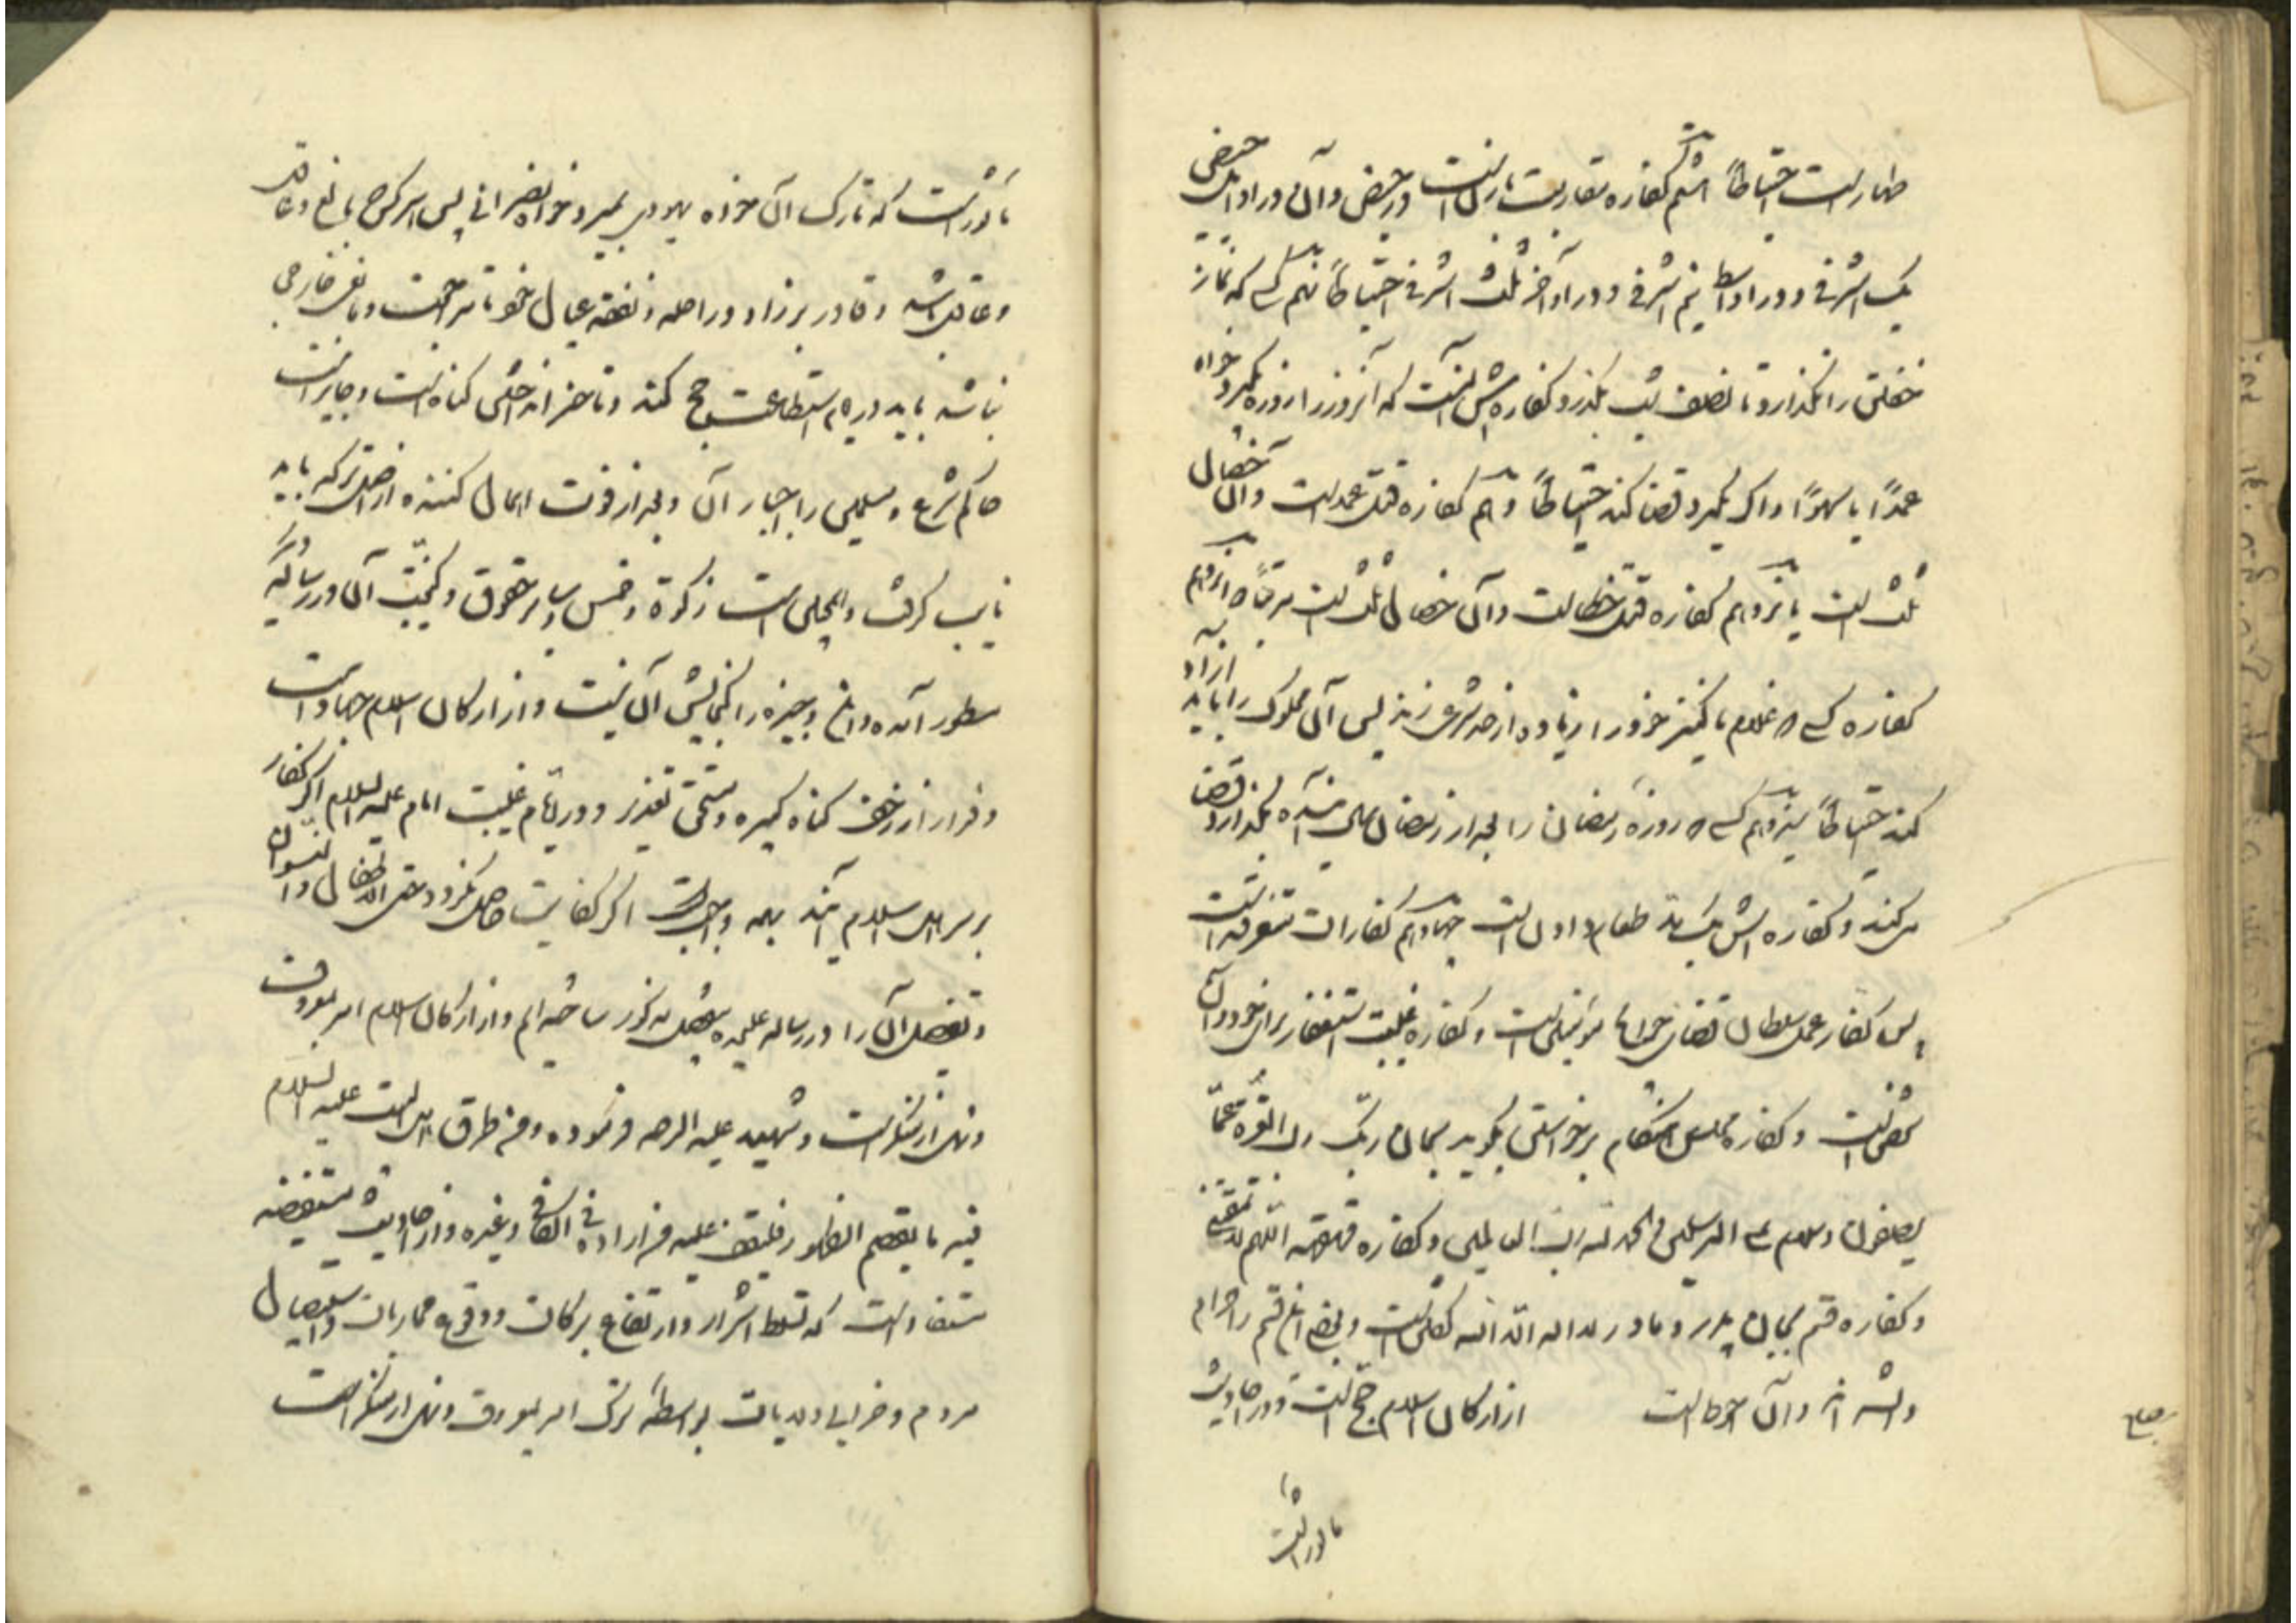 ظهار است احتیاطاً هشتم کفاره مقاربت با زنست در حیض و آن در اوایل حیض
یک اشرفی و در اواسط نیم اشرفی و در اواخر ثلث اشرفی احتیاطاً نهم کسی که نماز
خفتن را نگذارد تا نصف شب بگذرد کفاره‌اش آنست که آنروز را روزه بگیرد خواه
عمداً یا سهواً و اگر نگیرد قضا کند احتیاطاً دهم کفاره قتل عمد است و آن خصال
ثلث است یازدهم کفاره قتل خطا است و آن خصال ثلث است مرتباً دوازدهم
کفاره کسی که غلام یا کنیز خود را زیاده از حد شرعی زند پس آن مملوک را باید آزاد
کند احتیاطاً سیزدهم کسی که روزه رمضان را بعد از رمضان آینده بگذارد قضا
می‌کند و کفاره‌اش یک مد طعام است چهاردهم کفارات متفرقه است
پس کفاره عمل سلطان قضای حوایج مؤمنین است و کفاره غیبت استغفار برای خود و آن
شخص است و کفاره مجلس هنگام برخواستن بگوید سبحان ربک رب العزة عما
یصفون و سلام علی المرسلین و الحمد لله رب العالمین و کفاره قهقهه اللهم لا تمقتنی
و کفاره قسم بجان پدر و مادر لا اله الا الله گفتن است و بعضی این قسم را حرام
دانسته‌اند و آن احوط است از ارکان اسلام حج است و در احادیث
ماثور است
ماثور است که تارک آن خواه یهودی بمیرد خواه نصرانی پس هر کس بالغ و عاقل
باشد و قادر بر زاد و راحله و نفقه عیال خود تا مراجعت و مانعی خارجی
نباشد باید در عام استطاعت حج کند و تاخیر انداختن گناه است و جایز است
حاکم شرع و مسلمین را اجبار آن و بعد از فوت اهمال کننده از اصل ترکه باید
نایب گرفت و همچنین است زکوة و خمس و سایر حقوق و کیفیت آن در رساله دیگر
مسطور آمده و این وجیزه را گنجایش آن نیست و از ارکان اسلام جهاد است
و فرار از زحف گناه کبیره و مستحق تعذیر و در ایام غیبت امام علیه السلام اگر کفار
بر سر اهل اسلام آیند بر همه واجب است اگر کفایت حاصل نگردد حتی الاطفال و النسوان
و تفصیل آن را در رساله علیحده مفصل مذکور ساخته‌ایم و از ارکان اسلام امر بمعروف
و نهی از منکر است و شهید علیه الرحمه فرموده و من طرق اهل البیت علیهم السلام
فیه ما یقصم الظهور فلیقف علیه من اراده فی الکافی و غیره و از احادیث مستفیضه
مستفاد است که تسلط اشرار و ارتفاع برکات و وقوع محاربات و استیصال
مردم و خرابی ولایات بواسطه ترک امر بمعروف و نهی از منکر است